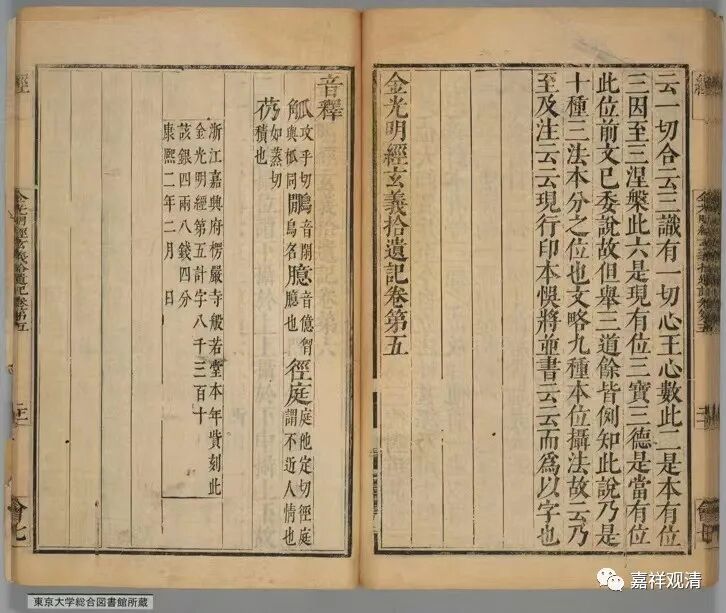 云一切合云三識有一切心王心數此二是本有位
三因至三涅槃此六是現有位三寶三德是當有位
此位前文已委說故但舉三道餘皆例知此說乃是
十種三法本分之位也文略九種本位攝法故云乃
至及注云云現行印本悞將並書云云而爲以字也
金光明經玄義拾遺記卷第五
音釋
觚攻乎切
角與柧同鷳音閑
鳥名臆音億胷
臆也徑庭庭他定切徑庭
謂不近人情也
芿如蒸切
積也
浙江嘉興府楞嚴寺般若堂本年貲刻此
金光明經第五計字八千三百十
該銀四兩八錢四分
康熙二年二月 日
經
金光明經玄義拾遺記卷第五
東京大学総合図書館所蔵
嘉祥观清